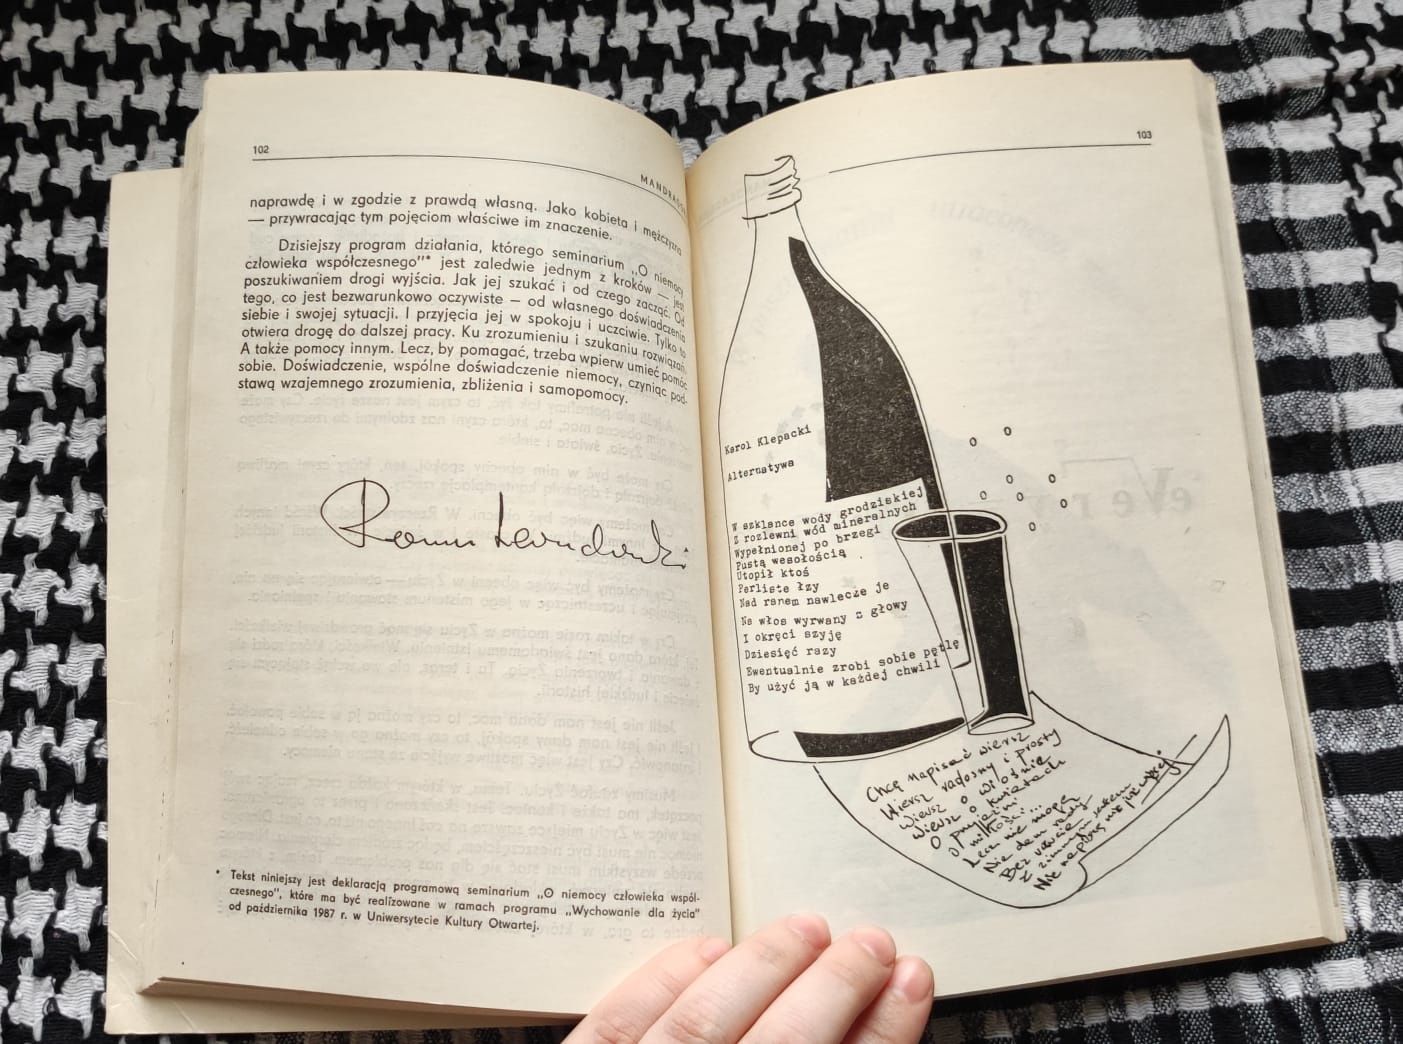 102
MANDRAGORA
naprawdę i w zgodzie z prawdą własną. Jako kobieta i mężczyzna
— przywracając tym pojęciom właściwe im znaczenie.
Dzisiejszy program działania, którego seminarium „O niemocy
człowieka współczesnego"* jest zaledwie jednym z kroków — jest
poszukiwaniem drogi wyjścia. Jak jej szukać i od czego zacząć. Od
tego, co jest bezwarunkowo oczywiste — od własnego doświadczenia
siebie i swojej sytuacji. I przyjęcia jej w spokoju i uczciwie. Tylko to
otwiera drogę do dalszej pracy. Ku zrozumieniu i szukaniu rozwiązań.
A także pomocy innym. Lecz, by pomagać, trzeba wpierw umieć pomóc
sobie. Doświadczenie, wspólne doświadczenie niemocy, czyniąc pod-
stawą wzajemnego zrozumienia, zbliżenia i samopomocy.
* Tekst niniejszy jest deklaracją programową seminarium „O niemocy człowieka współ-
czesnego", które ma być realizowane w ramach programu „Wychowanie dla życia"
od października 1987 r. w Uniwersytecie Kultury Otwartej.
103
Karol Klepacki
Alternatywa
W szklance wody grodziskiej
Z rozlewni wód mineralnych
Wypełnionej po brzegi
Pustą wesołością
Utopił ktoś
Perliste łzy
Nad ranem nawlecze je
Na włos wyrwany z głowy
I okręci szyję
Dziesięć razy
Ewentualnie zrobi sobie pętlę
By użyć ją w każdej chwili
Chcę napisać wiersz
Wiersz radosny i prosty
Wiersz o wiośnie
Wiersz o kwiatach
O przyjaźni
O miłości...
Lecz nie mogę
Nie dam rady
Bez uczucia
Z zimnym sercem
Nie napiszę nic już więcej